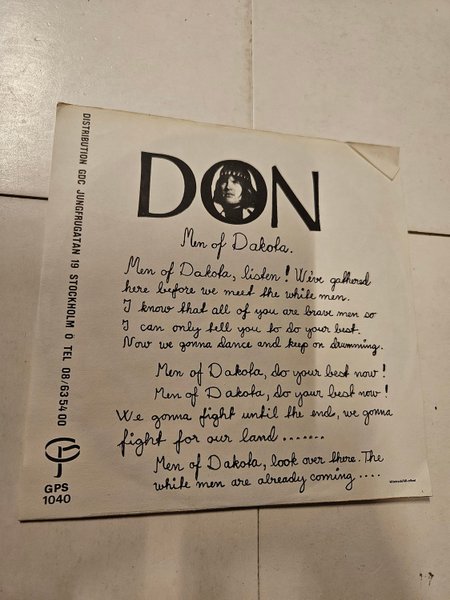 DISTRIBUTION GDC JUNGFRUGATAN 19 STOCKHOLM Ö TEL 08/63 54 00
DON
Men of Dakota.
Men of Dakota, listen! We've gathered
here before we meet the white men.
I know that all of you are brave men so
I can only tell you to do your best.
Now we gonna dance and keep on drumming.
Men of Dakota, do your best now!
Men of Dakota, do your best now!
We gonna fight until the end, we gonna
fight for our land .......
Men of Dakota, look over there. The
white men are already coming ....
GPS
1040